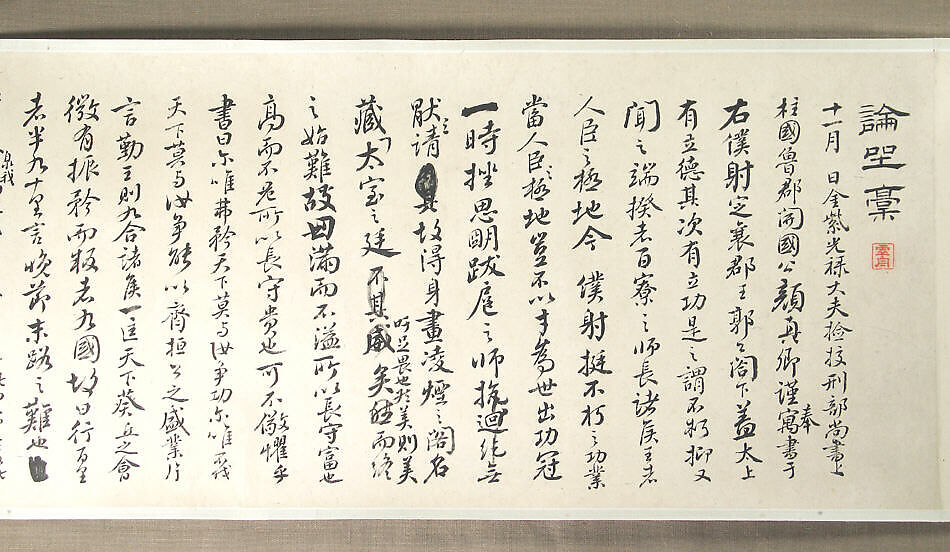 論坐稾
十一月 日金紫光祿大夫檢挍刑部尚書上
柱國魯郡開國公顏真卿謹奉寓書于
右僕射定襄郡王郭公閤下蓋太上
有立德其次有立功是之謂不朽抑又
聞之端揆者百寮之師長諸侯王者
人臣之極地今僕射挺不朽之功業
當人臣之極地豈不以才為世出功冠
一時挫思明跋扈之師抗迴紇無
猒之請故得身畫凌煙之閣名
吁足畏也然美則美
藏太室之廷不其盛矣然而終
之始難故曰滿而不溢所以長守富也
高而不危所以長守貴也可不儆懼乎
書曰尒唯弗矜天下莫与汝爭功尒唯不伐
天下莫与汝爭能以齊桓公之盛業片
言勤王則九合諸侯一匡天下葵丘之會
微有振矜而叛者九國故曰行百里
者半九十里言晚節末路之難也